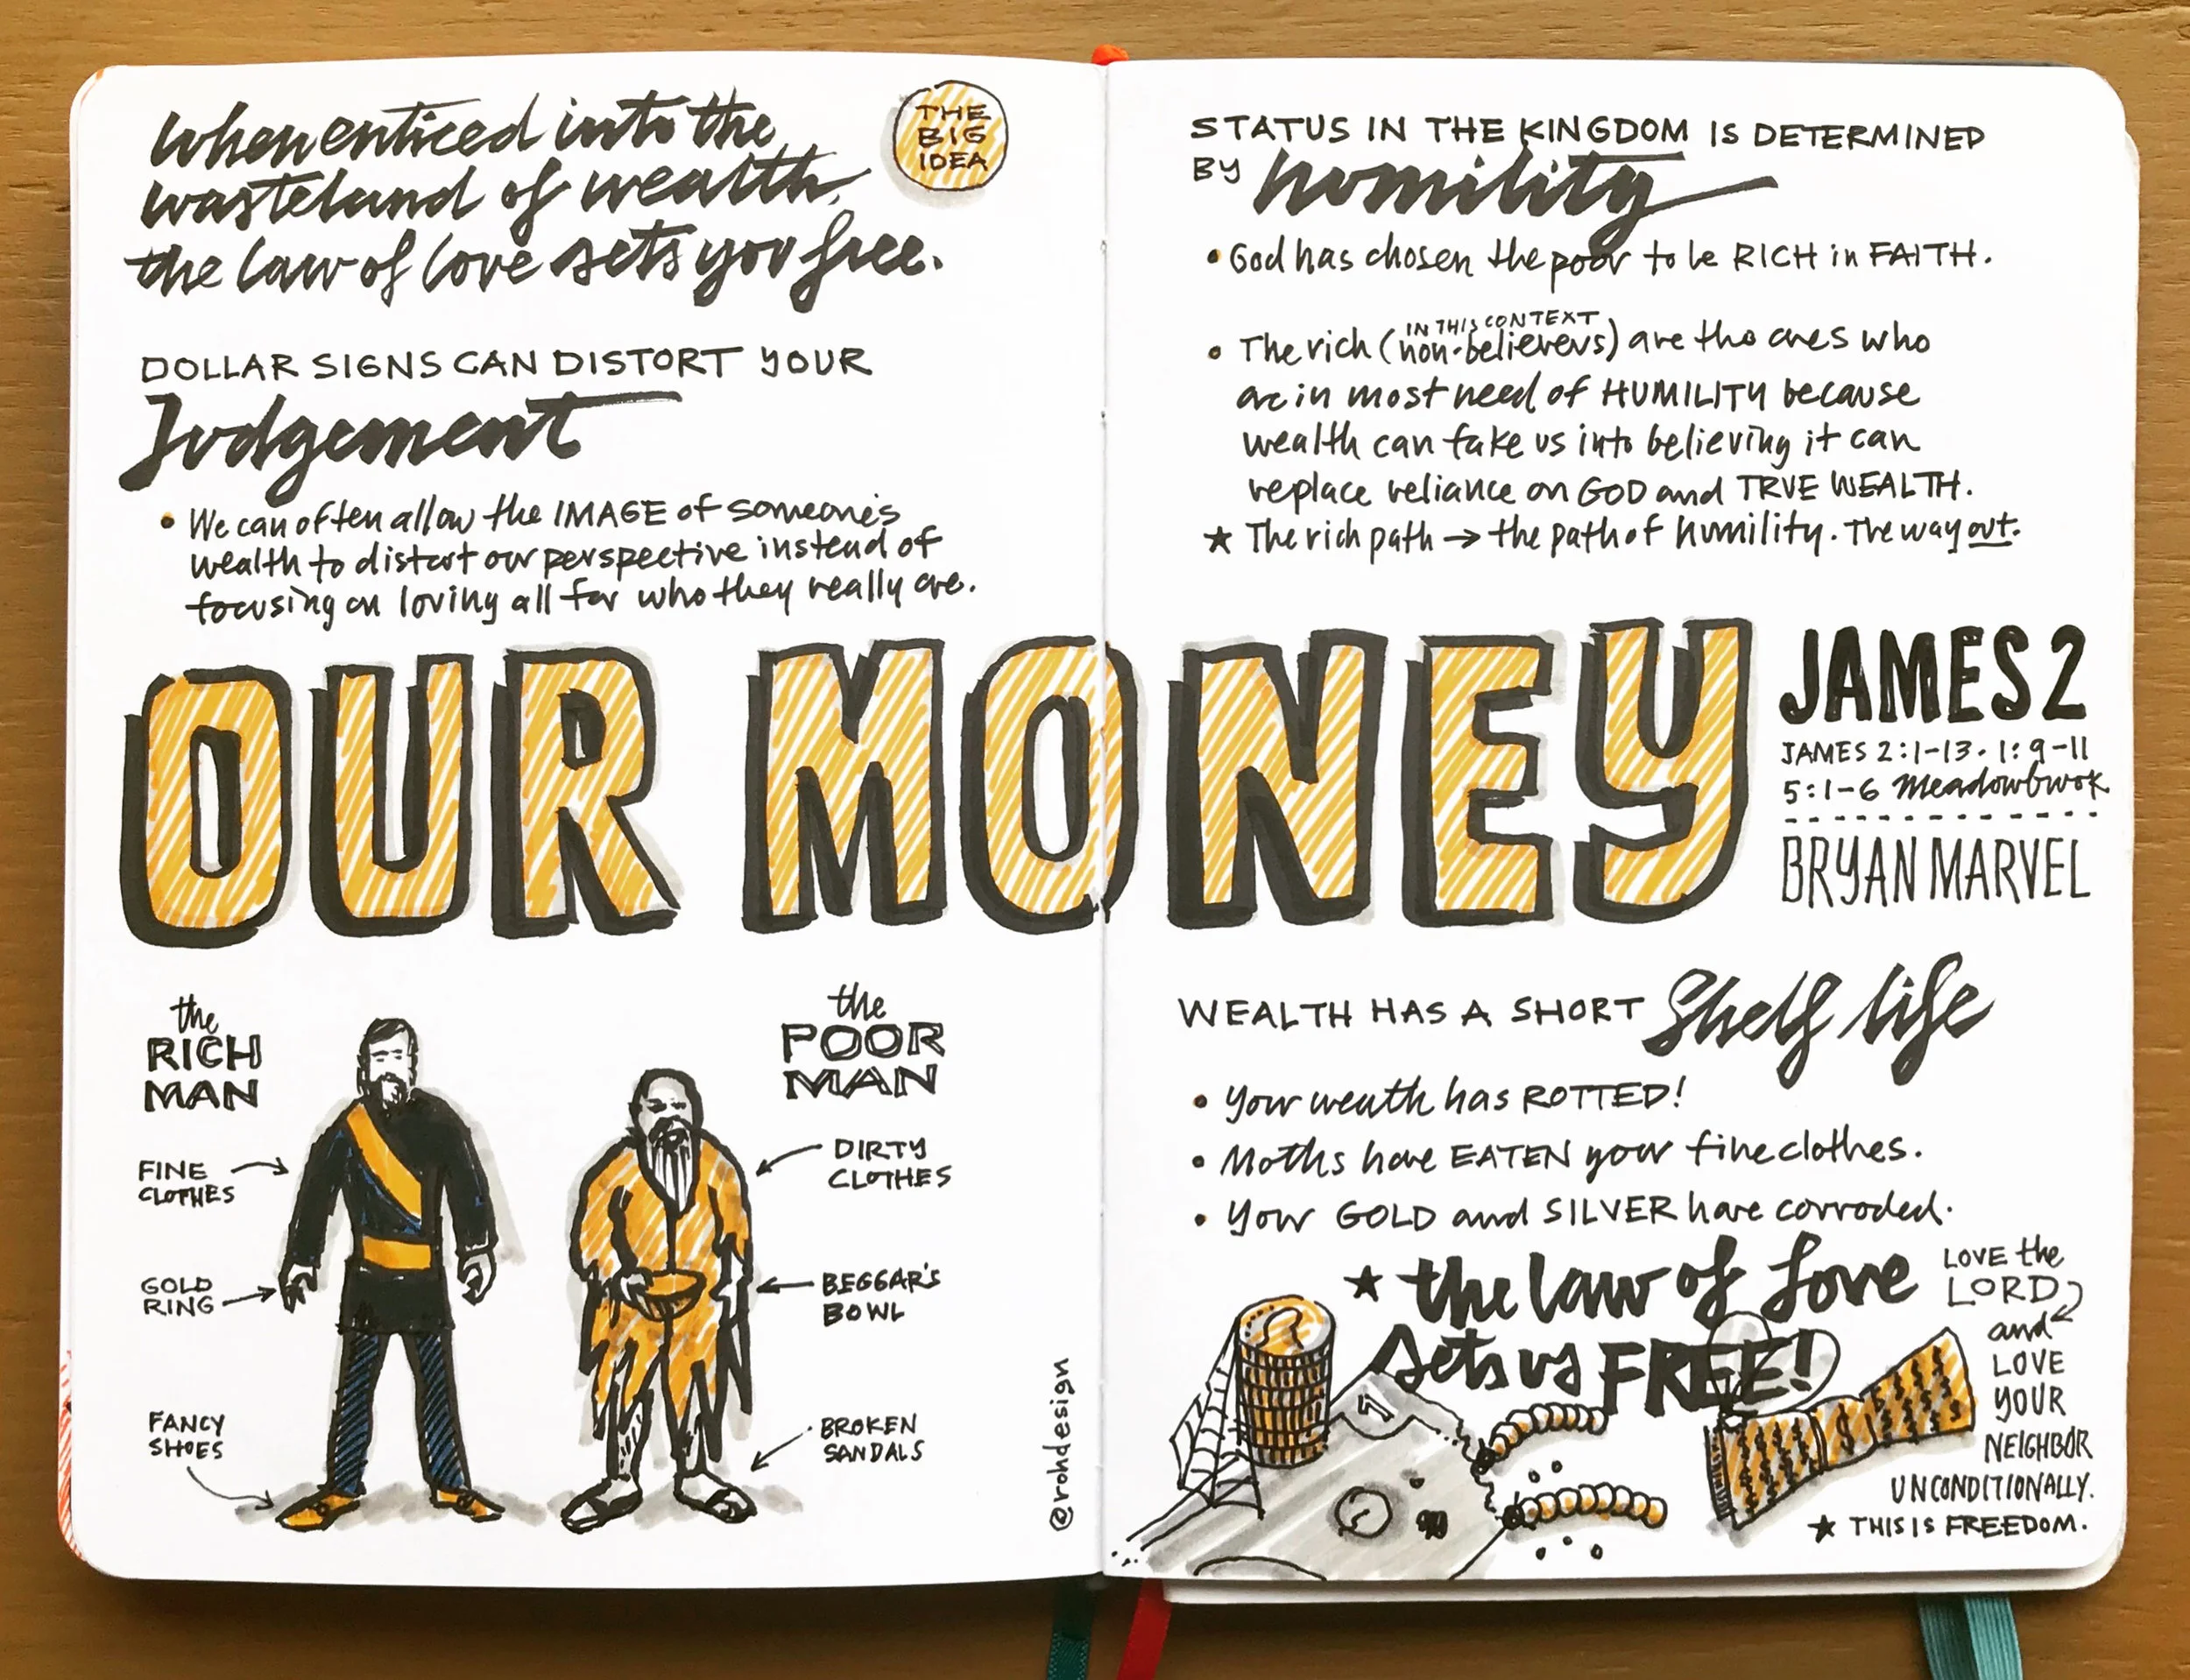 When enticed into the
wasteland of wealth,
the law of love sets you free.
THE
BIG
IDEA
DOLLAR SIGNS CAN DISTORT YOUR
Judgement
• We can often allow the IMAGE of someone's
wealth to distort our perspective instead of
focusing on loving all for who they really are.
STATUS IN THE KINGDOM IS DETERMINED
BY humility
• God has chosen the poor to be RICH in FAITH.
IN THIS CONTEXT
• The rich (non-believers) are the ones who
are in most need of HUMILITY because
wealth can fake us into believing it can
replace reliance on GOD and TRUE WEALTH.
★ The rich path → the path of humility. The way out.
OUR MONEY
JAMES 2
JAMES 2:1-13. 1:9-11
5:1-6 Meadowbrook
BRYAN MARVEL
the
RICH
MAN
FINE
CLOTHES
GOLD
RING
FANCY
SHOES
the
POOR
MAN
DIRTY
CLOTHES
BEGGAR'S
BOWL
BROKEN
SANDALS
@rohdesign
WEALTH HAS A SHORT Shelf life
• Your weath has ROTTED!
• Moths have EATEN your fine clothes.
• Your GOLD and SILVER have corroded.
★ the law of love
sets us FREE!
LOVE the
LORD
and
LOVE
YOUR
NEIGHBOR
UNCONDITIONALLY.
★ THIS IS FREEDOM.